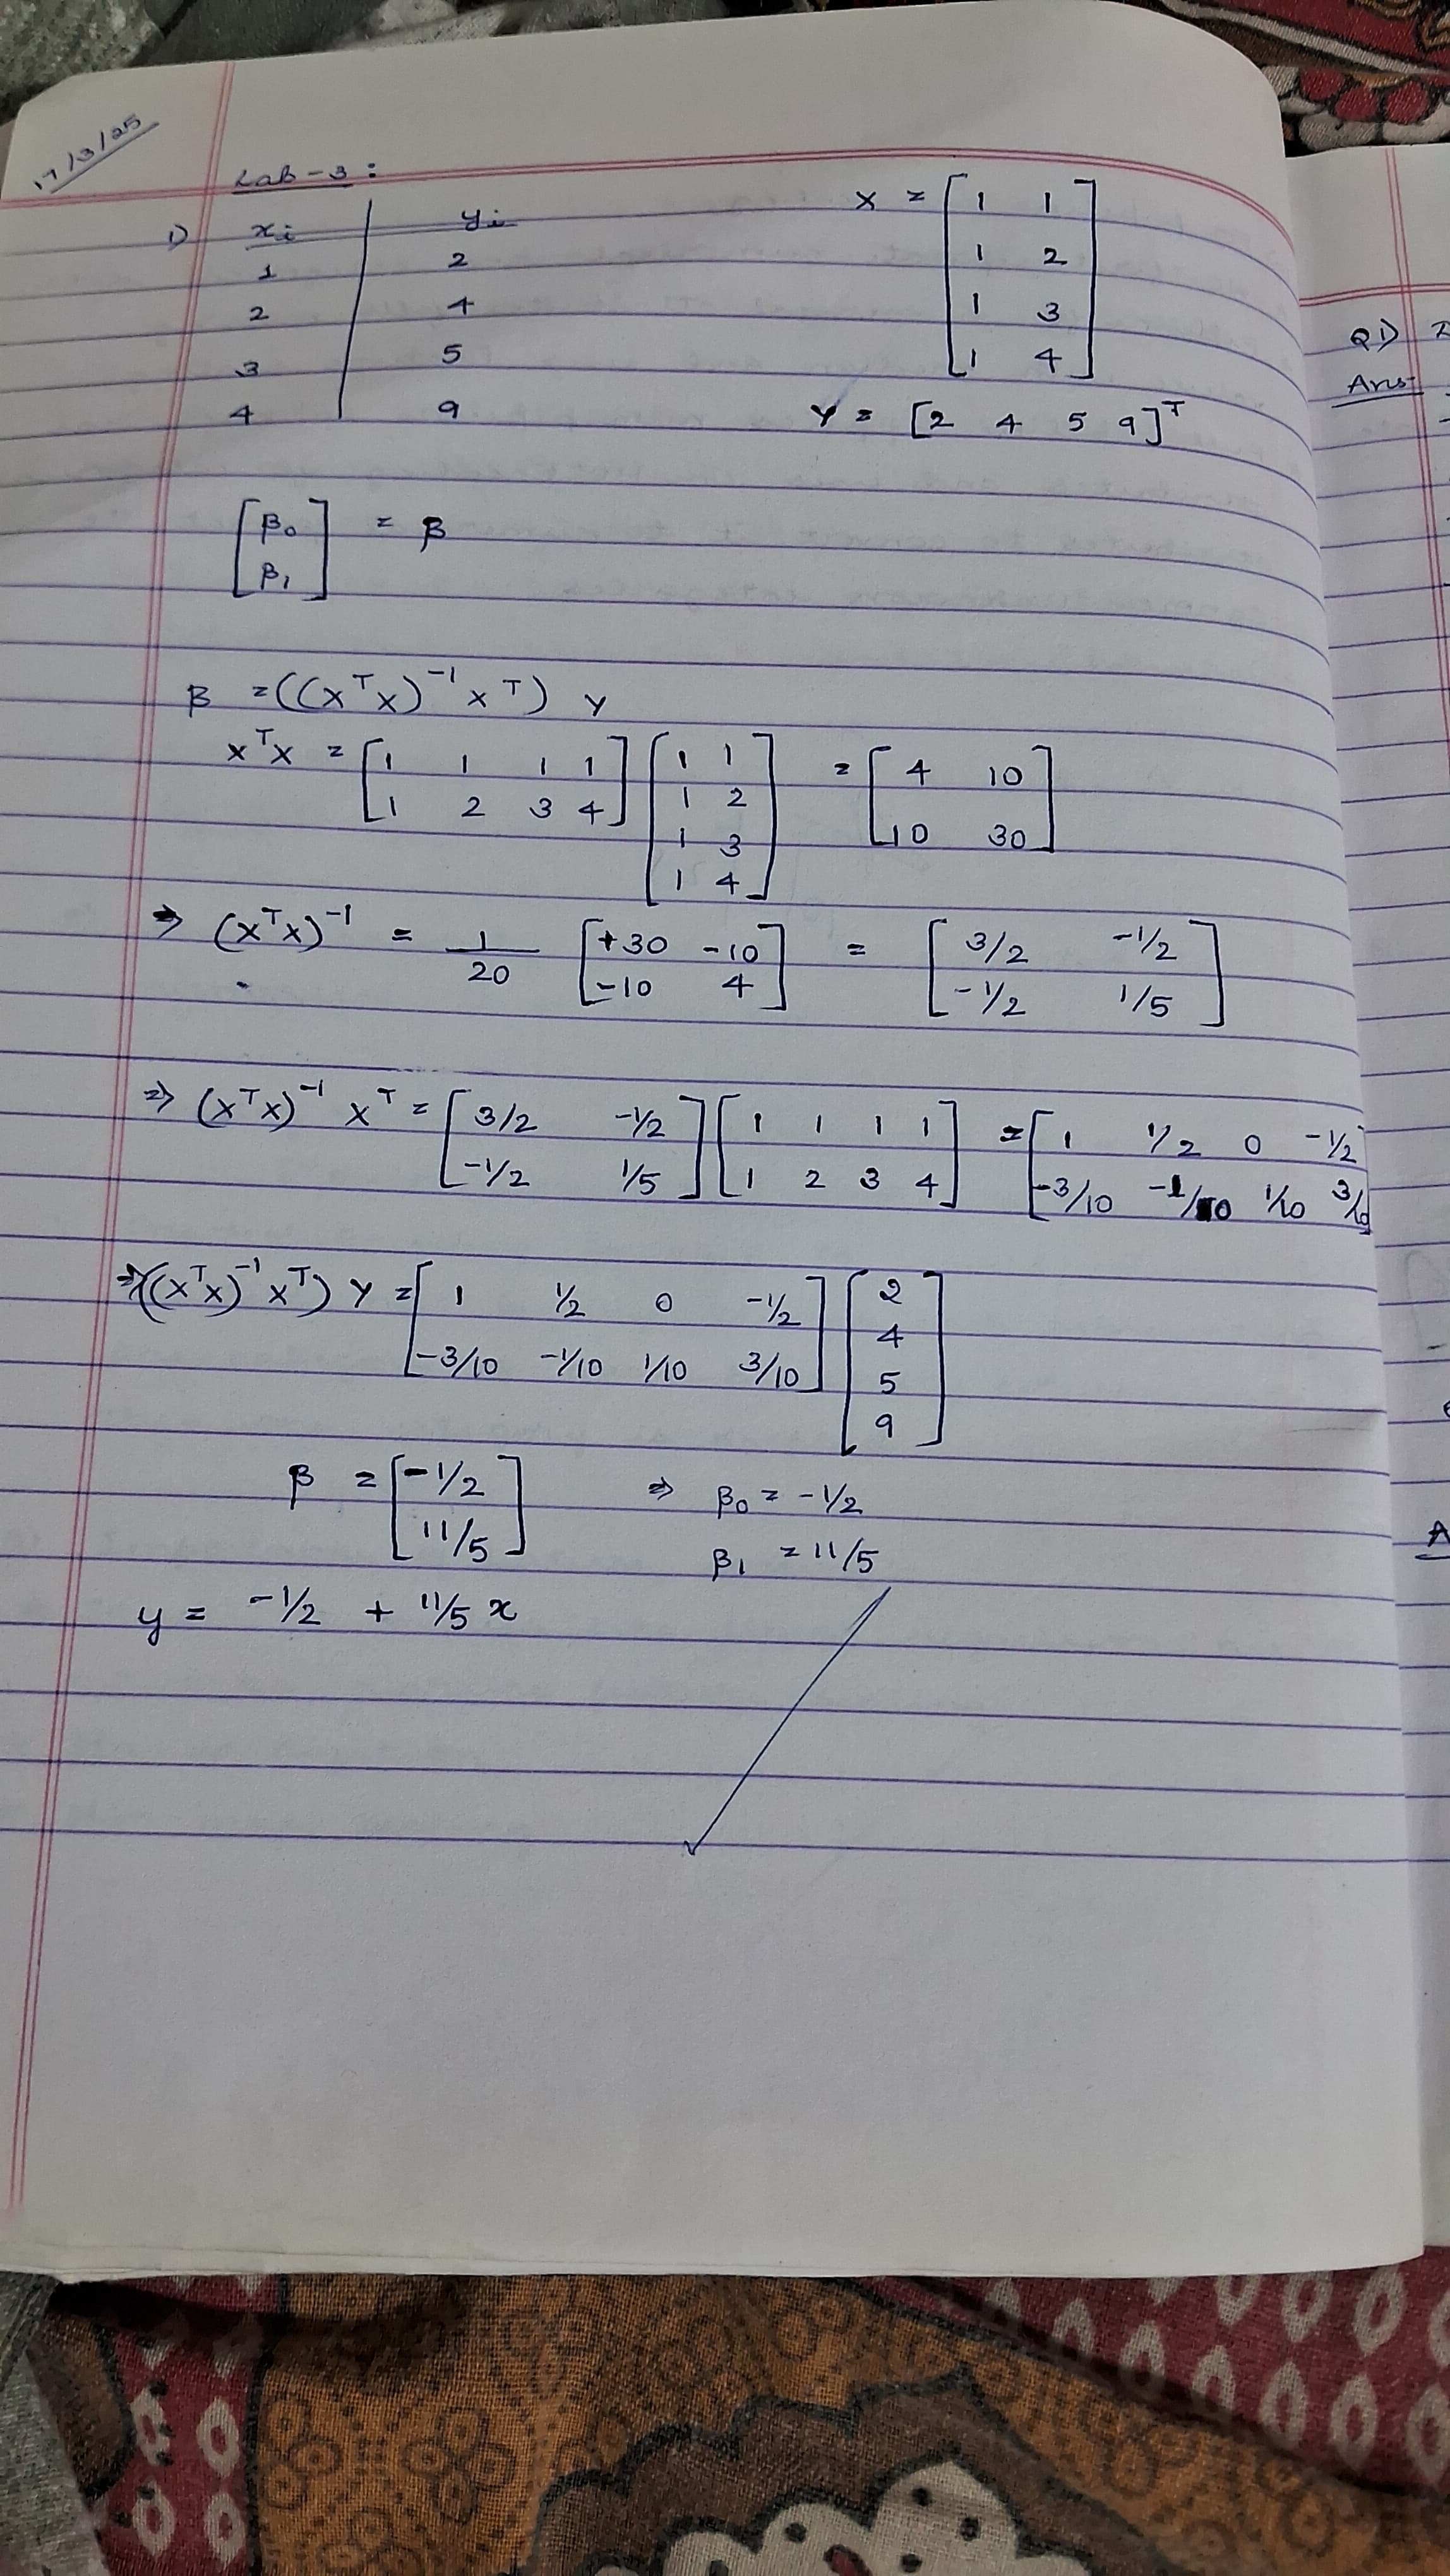 17/3/25
Lab-3:
1) xᵢ yᵢ
1 2
2 4
3 5
4 9
X = [1 1
1 2
1 3
1 4]
Y = [2 4 5 9]ᵀ
[β₀
β₁] = β
β = ((XᵀX)⁻¹ Xᵀ) Y
XᵀX = [1 1 1 1
1 2 3 4] [1 1
1 2
1 3
1 4] = [4 10
10 30]
⇒ (XᵀX)⁻¹ = 1/20 [+30 -10
-10 4] = [3/2 -1/2
-1/2 1/5]
⇒ (XᵀX)⁻¹ Xᵀ = [3/2 -1/2
-1/2 1/5] [1 1 1 1
1 2 3 4] = [1 1/2 0 -1/2
-3/10 -1/10 1/10 3/10]
⇒ ((XᵀX)⁻¹ Xᵀ) Y = [1 1/2 0 -1/2
-3/10 -1/10 1/10 3/10] [2
4
5
9]
β = [-1/2
11/5] ⇒ β₀ = -1/2
β₁ = 11/5
y = -1/2 + 11/5 x
Q1)
Ans